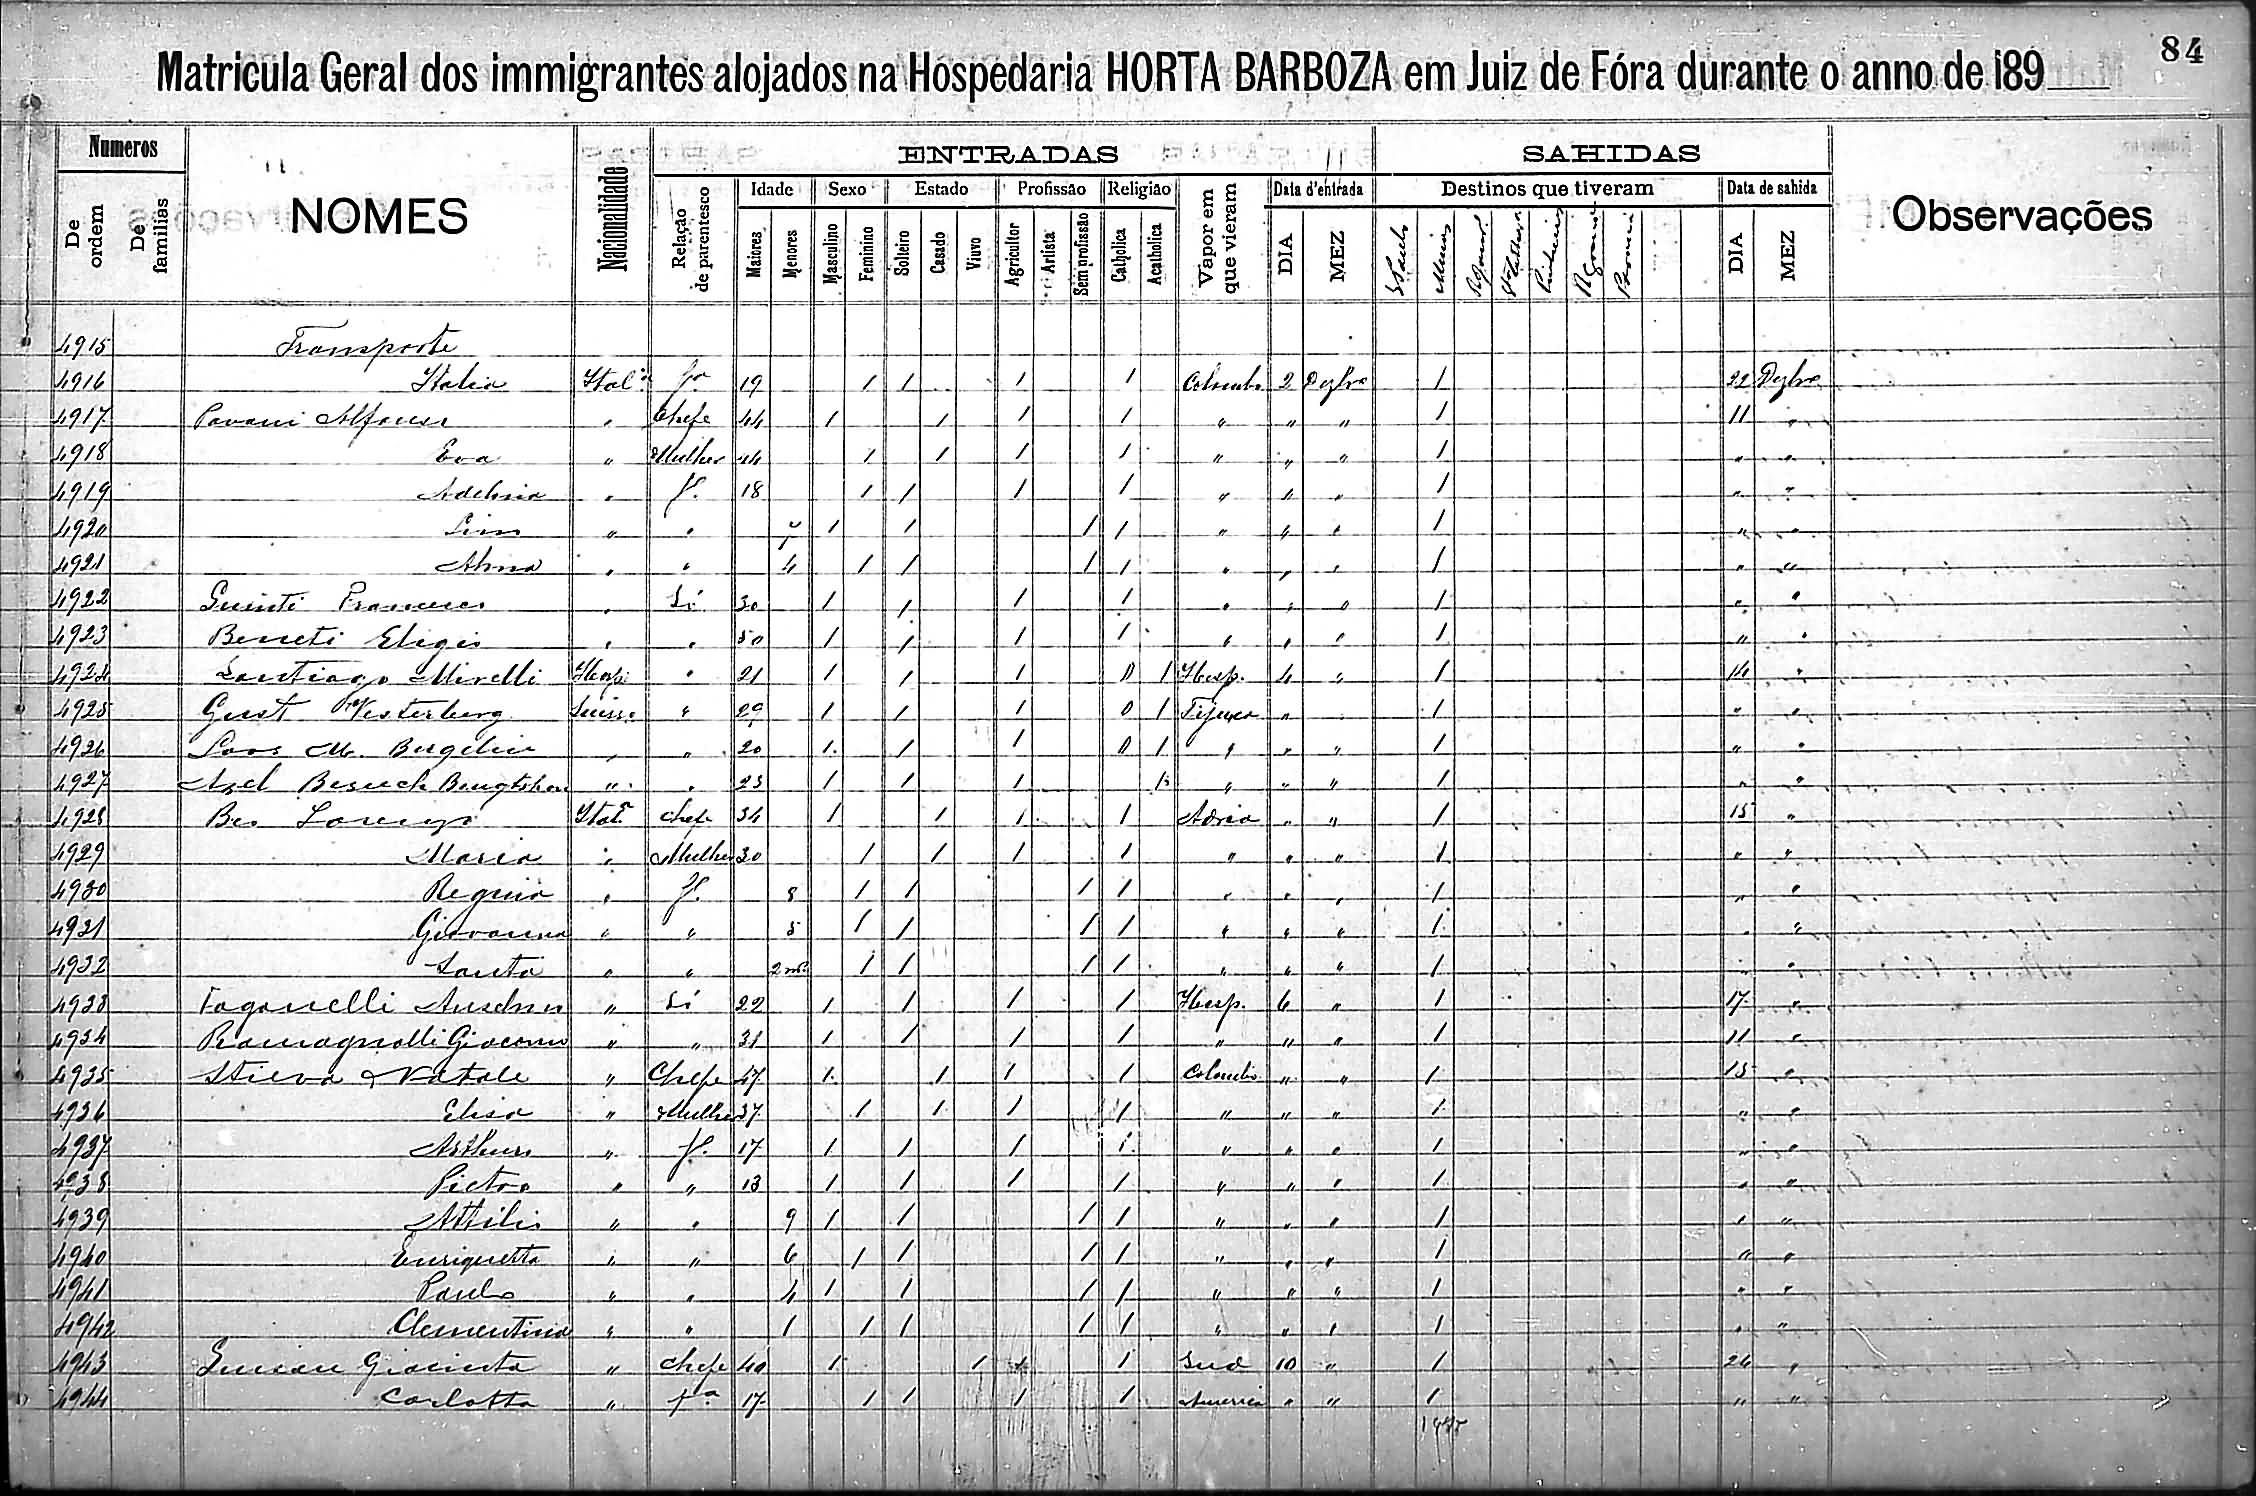 84
Matricula Geral dos immigrantes alojados na Hospedaria HORTA BARBOZA em Juiz de Fóra durante o anno de 189
Numeros
De ordem
De familias
NOMES
Nacionalidade
ENTRADAS
Relação de parentesco
Idade
Maiores
Menores
Sexo
Masculino
Feminino
Estado
Solteiro
Casado
Viuvo
Profissão
Agricultor
Artista
Sem profissão
Religião
Catholica
Acatholica
Vapor em que vieram
Data d'entrada
DIA
MEZ
SAHIDAS
Destinos que tiveram
S Paulo
Minas
Data de sahida
DIA
MEZ
Observações
4915 Transporte
4916 Italia Ital.ª fª 19 1 1 1 1 Colombo 2 Dezbro 1 22 Dezbro
4917 Pavani Alfonso " Chefe 44 1 1 1 1 " " " 1 11 "
4918 Eva " Mulher 44 1 1 1 1 " " " 1 " "
4919 " f. 18 1 1 1 1 " " " 1 " "
4920 " " 7 1 1 1 1 " " " 1 " "
4921 " " 4 1 1 1 1 " " " 1 " "
4922 " Só 30 1 1 1 1 " " " 1 " "
4923 " " 50 1 1 1 1 " " " 1 " "
4924 Santiago Mirelli Hesp. " 21 1 1 1 0 1 Hesp. 4 " 1 14 "
4925 Gust Westerberg Suiss. " 29 1 1 1 0 1 Tijuca " 1 " "
4926 " " 20 1 1 1 0 1 " " " 1 " "
4927 " " 23 1 1 1 1 " " " 1 " "
4928 Bes Lorenzo Ital.ª chefe 34 1 1 1 1 Adria " " 1 15 "
4929 Maria " Mulher 30 1 1 1 1 " " " 1 " "
4930 Regina " f. 8 1 1 1 1 " " " 1 " "
4931 Giovanna " " 5 1 1 1 1 " " " 1 " "
4932 Santa " " 2 ms. 1 1 1 1 " " " 1 " "
4933 Faganelli Anselmo " Só 22 1 1 1 1 Hesp. 6 " 1 17 "
4934 Romagnolli Giacomo " " 31 1 1 1 1 " " " 1 11 "
4935 Natale " Chefe 47 1 1 1 1 Colombo " " 1 15 "
4936 Elisa " Mulher 37 1 1 1 1 " " " 1 " "
4937 Arthuro " f. 17 1 1 1 1 " " " 1 " "
4938 Pietro " " 13 1 1 1 1 " " " 1 " "
4939 Attilio " " 9 1 1 1 1 " " " 1 " "
4940 Enriquetta " " 6 1 1 1 1 " " " 1 " "
4941 Paulo " " 4 1 1 1 1 " " " 1 " "
4942 Clementina " " 1 1 1 1 1 " " " 1 " "
4943 Giacinto " chefe 40 1 1 1 1 Sud 10 " 1 26 "
4944 Carlotta " fª 17 1 1 1 1 America " " 1 " "